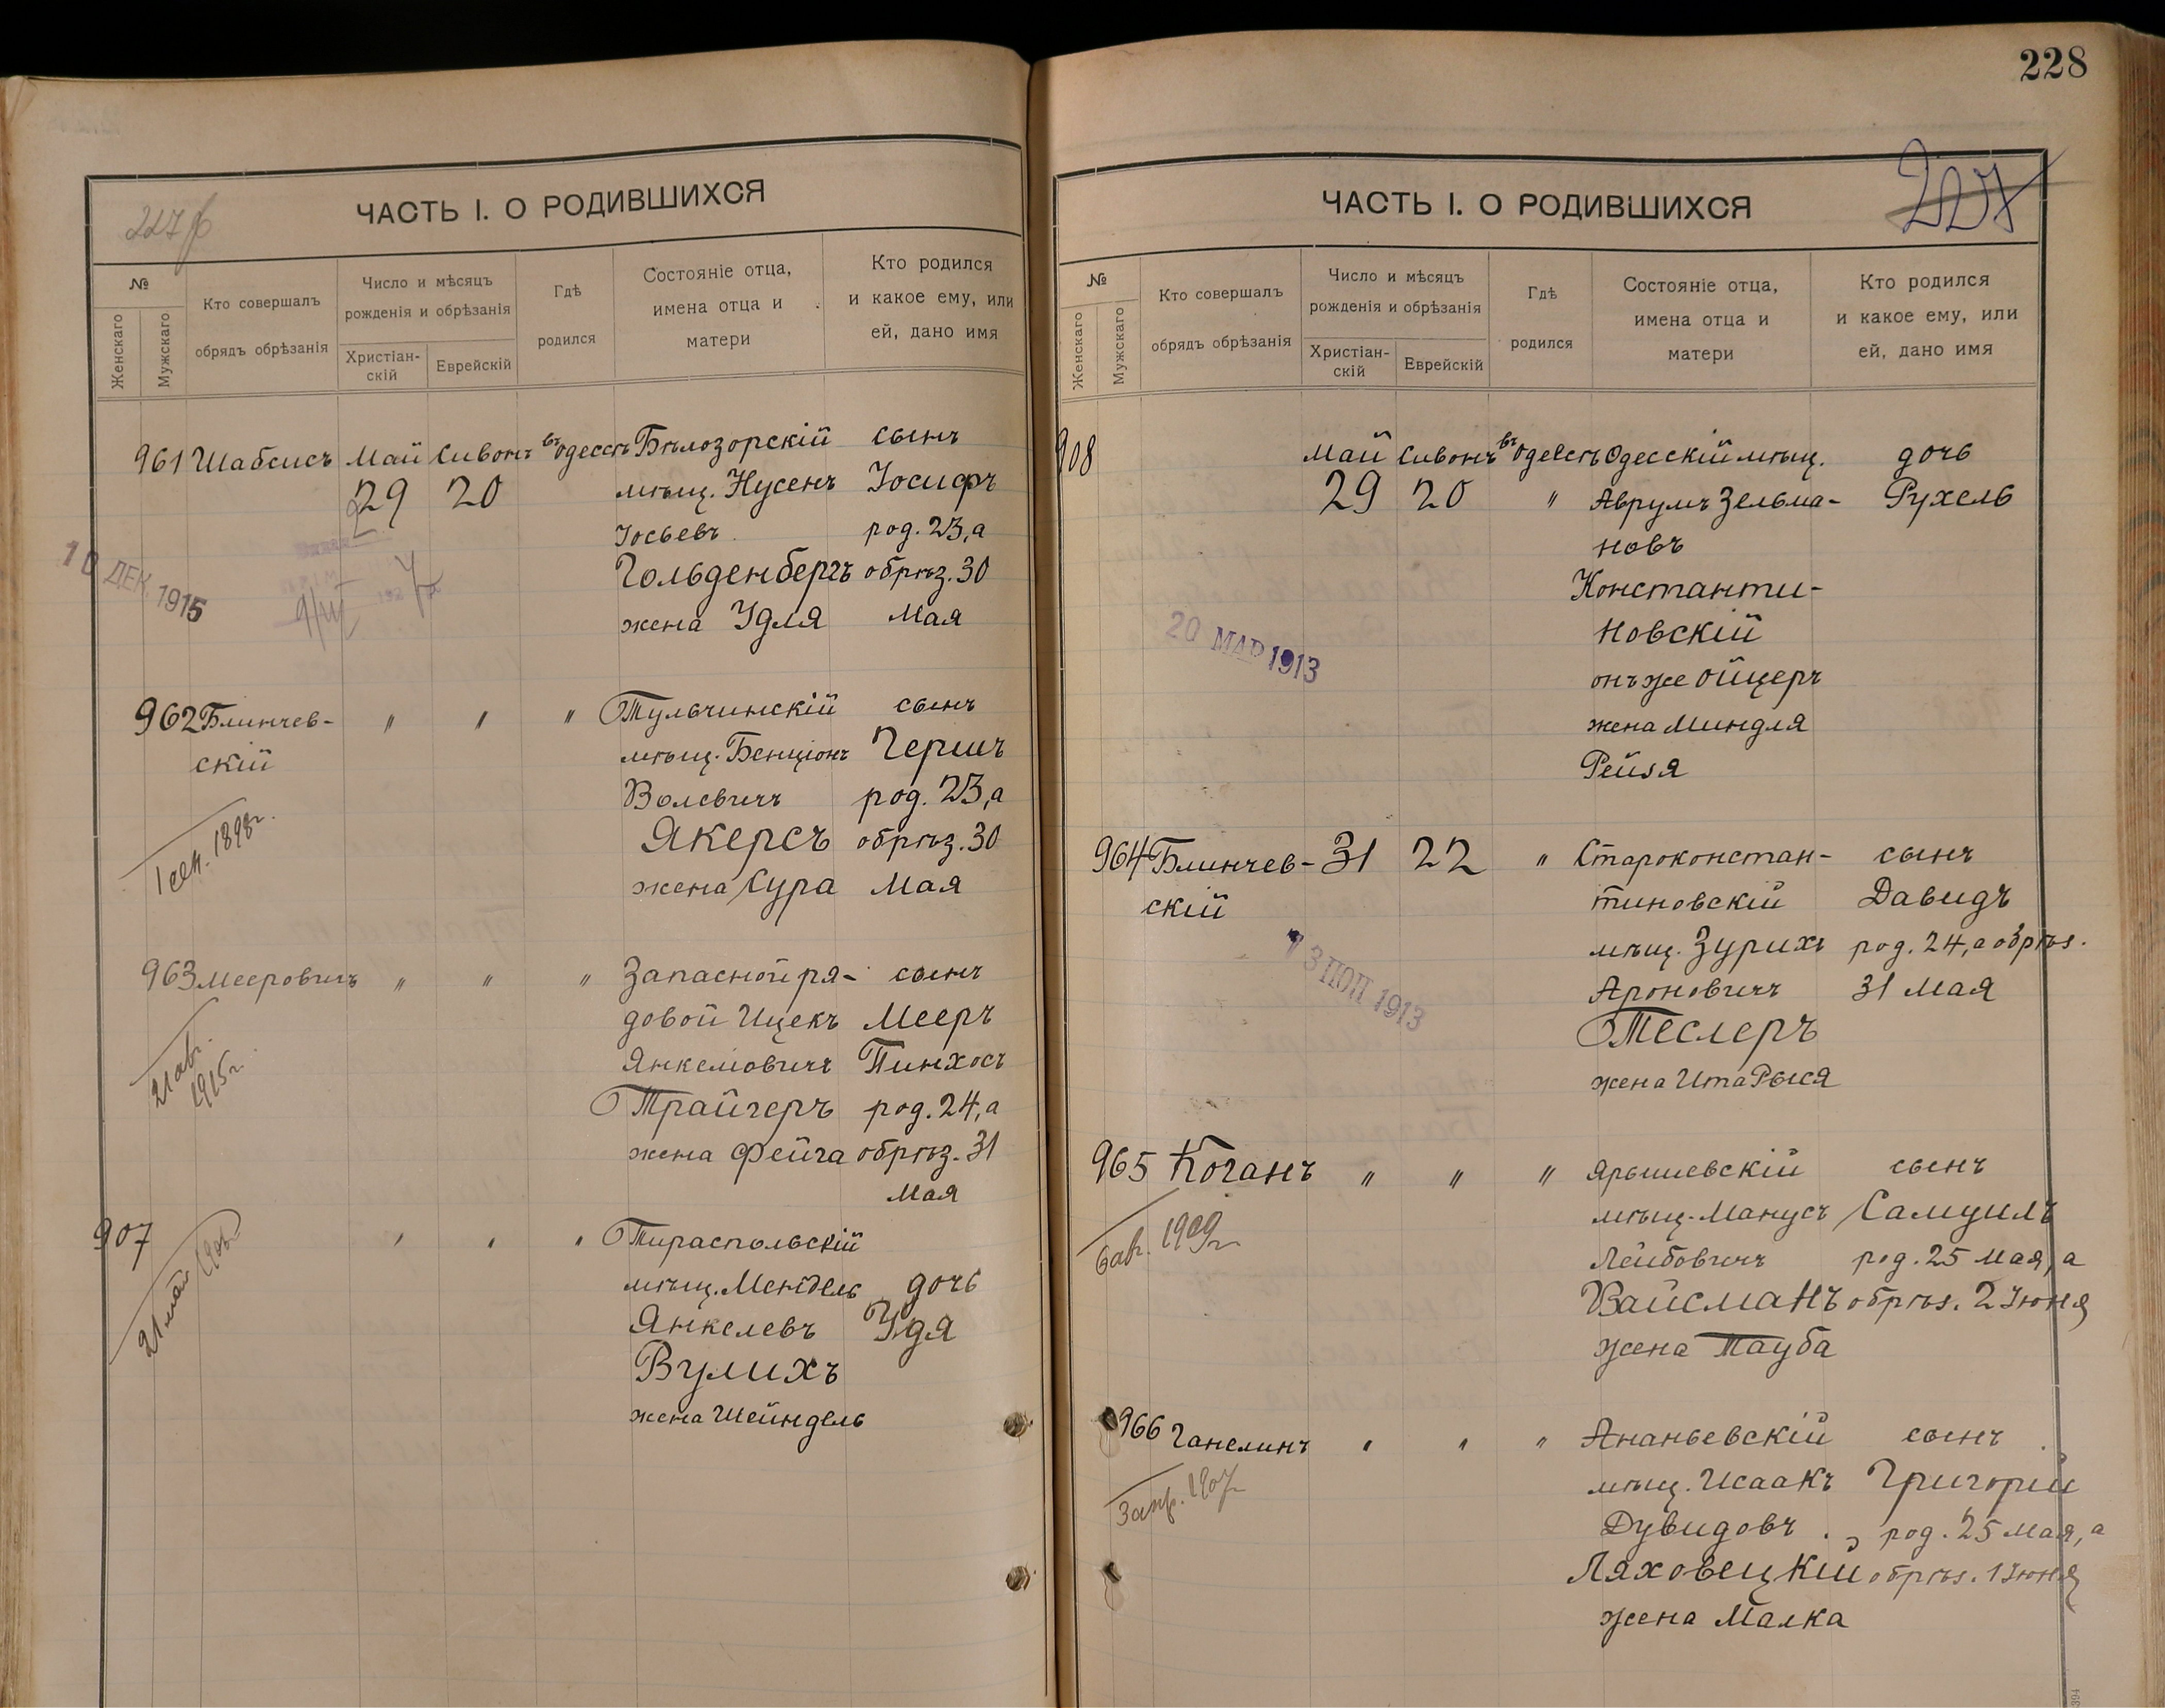 228
227
ЧАСТЬ I. О РОДИВШИХСЯ
№
Женскаго
Мужскаго
Кто совершалъ
обрядъ обрѣзанія
Число и мѣсяцъ
рожденія и обрѣзанія
Христіан-
скій
Еврейскій
Гдѣ
родился
Состояніе отца,
имена отца и
матери
Кто родился
и какое ему, или
ей, дано имя
961 Шабсисъ Май Сивонъ въ Одессѣ Бѣлозорскій сынъ
29 20 мѣщ. Нусенъ Іосифъ
Іосьевъ род. 23, а
Гольденбергъ обрѣз. 30
жена Удля Мая
10 ДЕК 1915
962 Блинчев- " " " Тульчинскій сынъ
скій мѣщ. Бенціонъ Гершъ
Волевичъ род. 23, а
Якерсъ обрѣз. 30
жена Сура Мая
1 сен. 1898 г.
963 Мееровичъ " " " Запасной ря- сынъ
довой Ицекъ Мееръ
Янкелевичъ Пинхосъ
Трайгеръ род. 24, а
жена Фейга обрѣз. 31
Мая
21 авг.
1915 г.
907 " " " Тираспольскій
мѣщ. Мендель дочь
Янкелевъ Удя
Вулихъ
жена Шейндель
21 май
ЧАСТЬ I. О РОДИВШИХСЯ
227
№
Женскаго
Мужскаго
Кто совершалъ
обрядъ обрѣзанія
Число и мѣсяцъ
рожденія и обрѣзанія
Христіан-
скій
Еврейскій
Гдѣ
родился
Состояніе отца,
имена отца и
матери
Кто родился
и какое ему, или
ей, дано имя
908 Май Сивонъ въ Одессѣ Одесскій мѣщ. дочь
29 20 " Аврумъ Зельма- Рухель
новъ
Константи-
новскій
онъ же Ойцеръ
жена Миндля
Рейзя
20 МАР 1913
964 Блинчев- 31 22 " Староконстан- сынъ
скій тиновскій Давидъ
мѣщ. Зурихъ род. 24, а обрѣз.
Ароновичъ 31 Мая
Теслеръ
жена Ита Рыся
1913
965 Коганъ " " " Ярышевскій сынъ
мѣщ. Манусъ Самуилъ
Лейбовичъ род. 25 Мая, а
Вайсманъ обрѣз. 2 Іюня
жена Тауба
6 авг. 1909 г.
966 Ганелинъ " " " Ананьевскій сынъ
мѣщ. Исаакъ Григорій
Дувидовъ род. 25 Мая, а
Ляховецкій обрѣз. 1 Іюня
жена Малка
3 апр. 1907